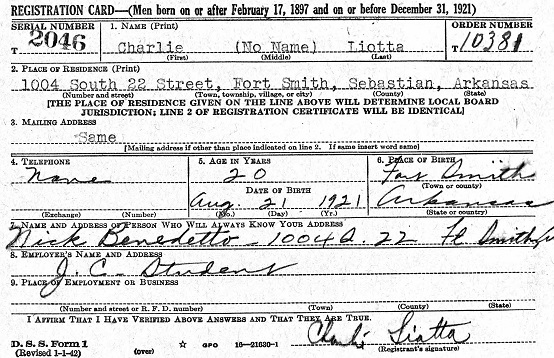 REGISTRATION CARD—(Men born on or after February 17, 1897 and on or before December 31, 1921)
SERIAL NUMBER 1. NAME (Print) ORDER NUMBER
T 2046 Charlie (No Name) Liotta T 10381
(First) (Middle) (Last)
2. PLACE OF RESIDENCE (Print)
1004 South 22 Street, Fort Smith, Sebastian, Arkansas
(Number and street) (Town, township, village, or city) (County) (State)
[THE PLACE OF RESIDENCE GIVEN ON THE LINE ABOVE WILL DETERMINE LOCAL BOARD
JURISDICTION; LINE 2 OF REGISTRATION CERTIFICATE WILL BE IDENTICAL]
3. MAILING ADDRESS
Same
[Mailing address if other than place indicated on line 2. If same insert word same]
4. TELEPHONE 5. AGE IN YEARS 6. PLACE OF BIRTH
None 20 Fort Smith
DATE OF BIRTH (Town or county)
Aug. 21 1921 Arkansas
(Exchange) (Number) (Mo.) (Day) (Yr.) (State or country)
7. NAME AND ADDRESS OF PERSON WHO WILL ALWAYS KNOW YOUR ADDRESS
Nick Benedetto - 1004 S. 22 Ft Smith
8. EMPLOYER'S NAME AND ADDRESS
J. C. Student
9. PLACE OF EMPLOYMENT OR BUSINESS
(Number and street or R. F. D. number) (Town) (County) (State)
I AFFIRM THAT I HAVE VERIFIED ABOVE ANSWERS AND THAT THEY ARE TRUE.
D. S. S. Form 1 Charlie Liotta
(Revised 1-1-42) (over) ☆ GPO 16-21630-1 (Registrant's signature)